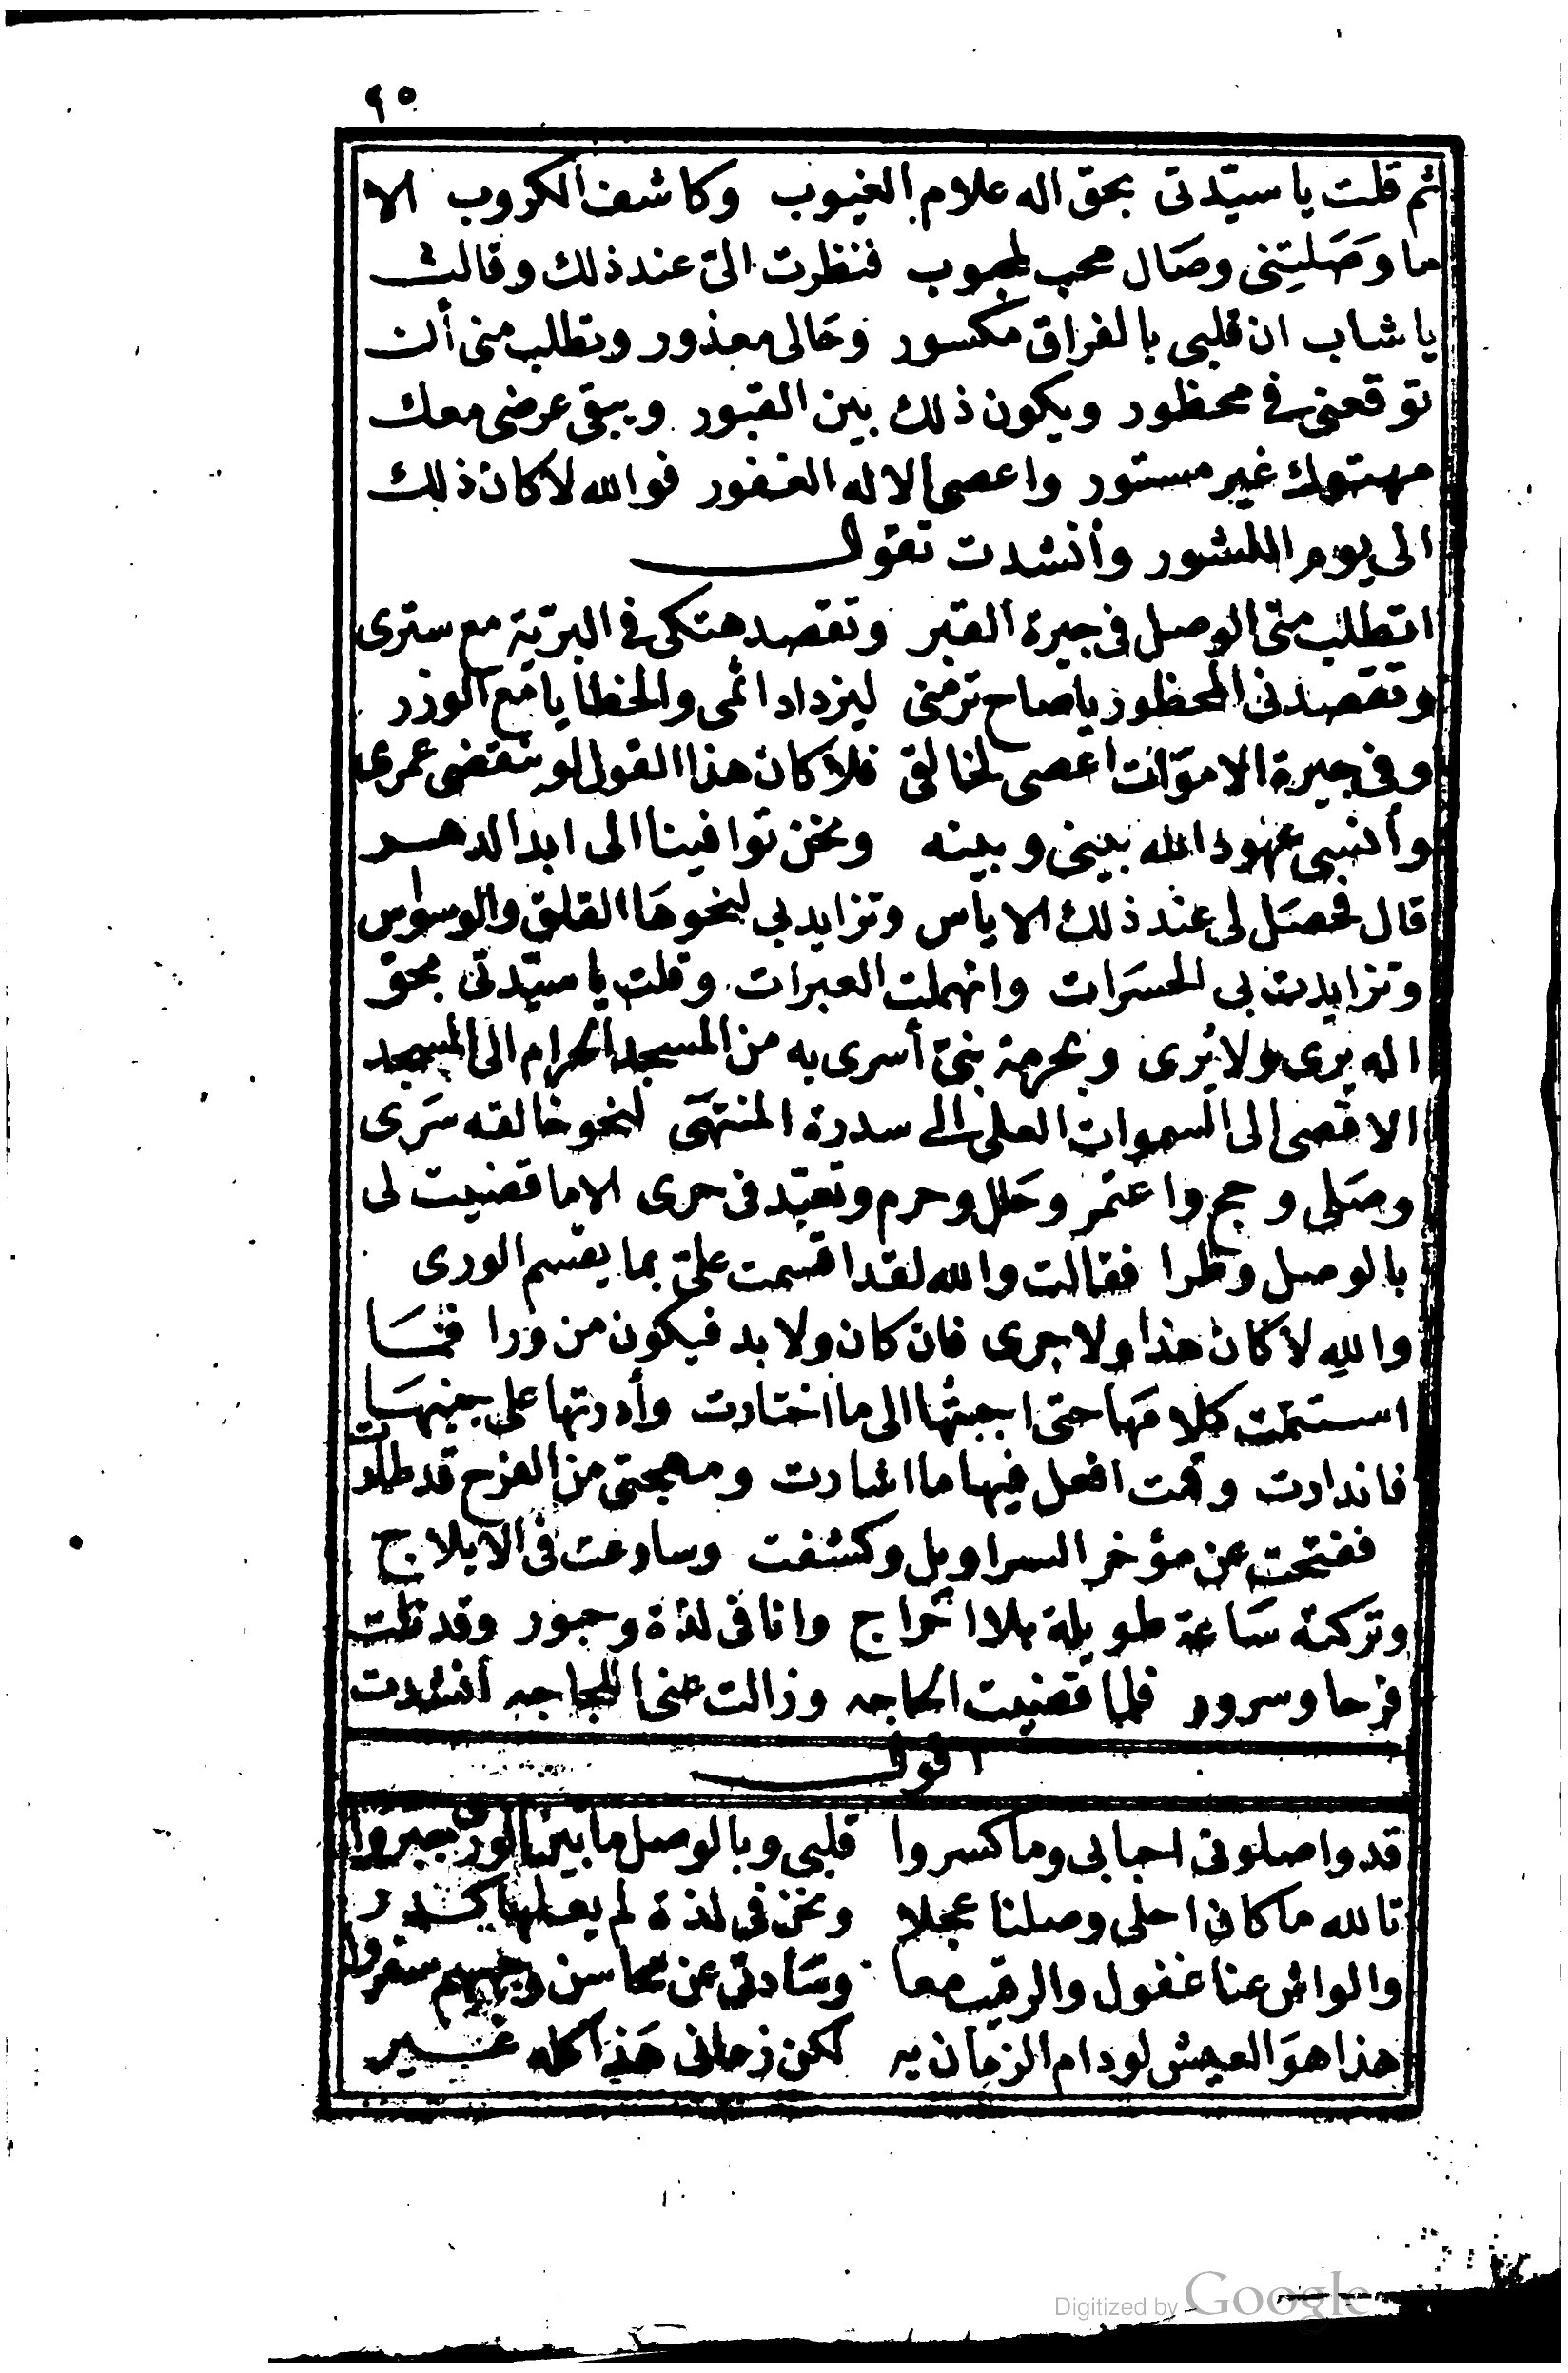 ٩٥
ثم قلت يا سيّدتى بحق اله علام الغيوب وكاشف الكروب الا
ما وَصَليتنى وصَال محب لمحبوب فنظرت الىّ عند ذلك وقالت
يا شاب ان قلبى بالفراق مكسور وحَالى معذور وتطلب منى أن
توقعنى فى محظور ويكون ذلك بين القبور ويبقى عرضى معك
مهتوك غير مستور واعصى الاله الغفور فوالله لا كان ذلك
الى يوم النشور وأنشدت تقول
اتطلب منى الوصل فى جيرة القبر وتقصد هتكى فى البريّة مع سترى
وتقصدنى المحظور يا صاح ترمنى ليزداد اثمى والخطايا مع الوزر
وفى جيرة الاموات اعصى لخالقى فلا كان هذا القول لو ينقضى عمرى
وأنسى عهود الله بينى وبينه ونحن توافينا الى ابد الدهر
قال فحصَل لى عند ذلك الاياس وتزايد بى لنحوهَا القلق والوسواس
وتزايدت بى الحسَرات وانهملت العبرات وقلت يا سيّدتى بحق
اله يرى ولا يُرى وبحرمة نبىّ أسرى به من المسجد الحرام الى المسجد
الاقصى الى السموات العلى الى سدرة المنتهَى لنحو خالقه سَرى
وصَلى وحج واعتمر وحَلل وحرم وتعبّد فى حرى الا ما قضيت لى
بالوصل وطرا فقالت والله لقد اقسمت علىّ بما يقسم الورى
والله لا كان هذا ولا جرى فان كان ولا بد فيكون من ورا فمَا
استتمت كلامَها حتى اجبتُها الى ما اختارت وأدرتها على جنبهَا
فاندارت وقمت افعل فيها ما اشارت ومهجتى من الفرح قد طارت
ففتحت عن مؤخر السراويل وكشفت وسارعت فى الايلاج
وتركته سَاعة طويلة بلا اخراج وانا فى لذة وحبور وقد نلت
فرحا وسرور فلما قضيت الحاجه وزالت عنى اللجاجه أنشدت
اقول
قد واصلونى احبابى وما كسروا قلبى وبالوصل ما بين الورى جبروا
تالله ما كان احلى وصلنا عجلا ونحن فى لذة لم يعلها كدر
والواش عنا غفول والرقيب معا وسَادتى عن محاسن وجههم سفروا
هذا هوَ العيش لو دام الزمَان به لكن زمانى هَذا كله غير